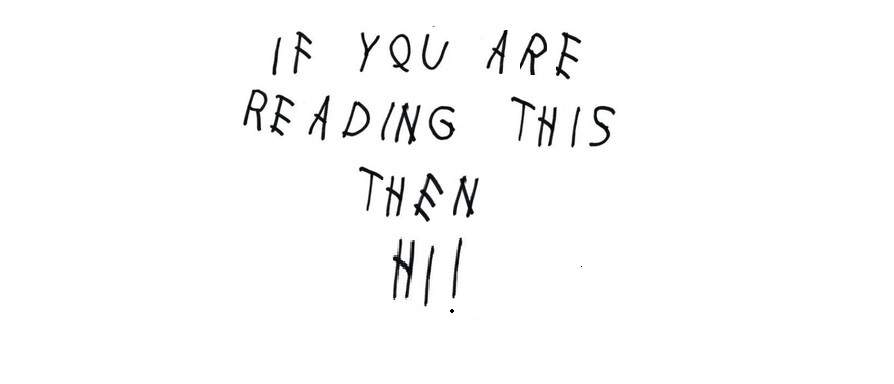 IF YOU ARE
READING THIS
THEN
HI!